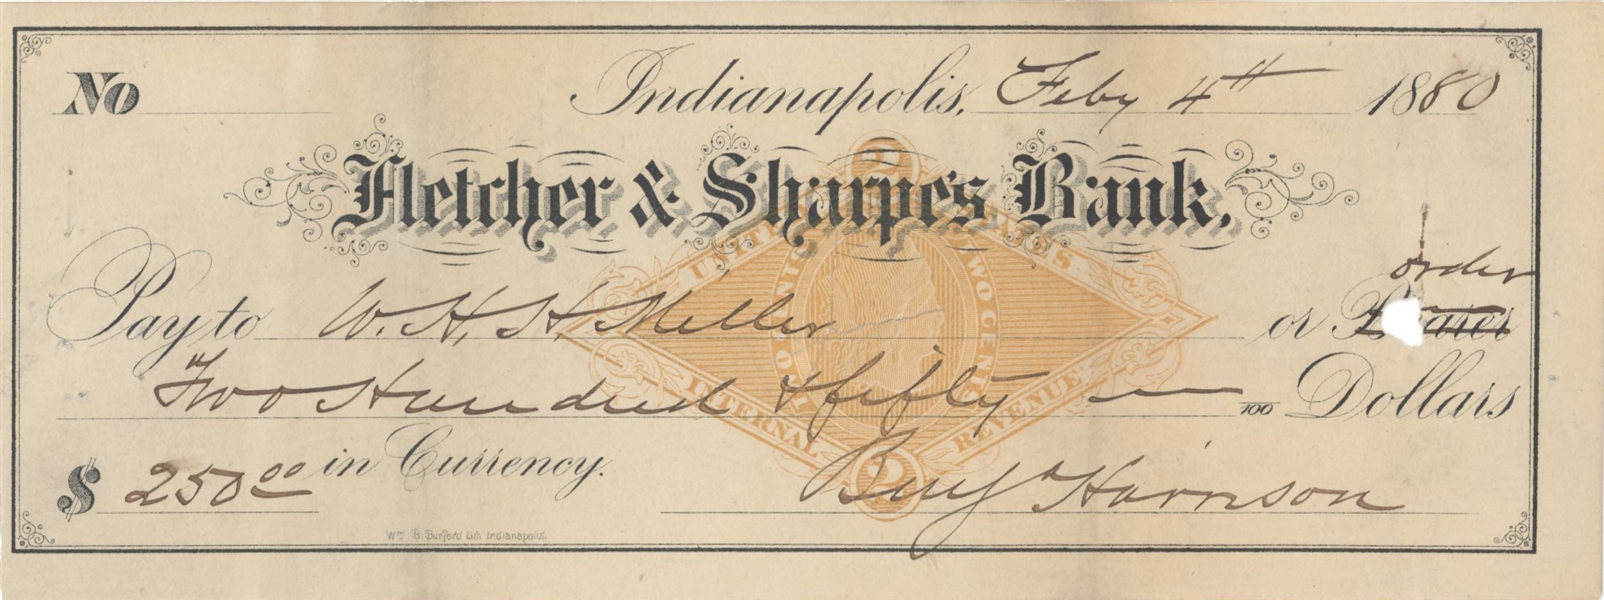 No Indianapolis, Feby 4th 1880
Fletcher & Sharpe's Bank,
order
Pay to W. H. H. Miller or Bearer
Two Hundred & fifty 100 Dollars
$ 250 00 in Currency.
Benj Harrison
Wm B. Burford Lith Indianapolis.
2
UNITED STATES
TWO CENTS
INTERNAL REVENUE
2